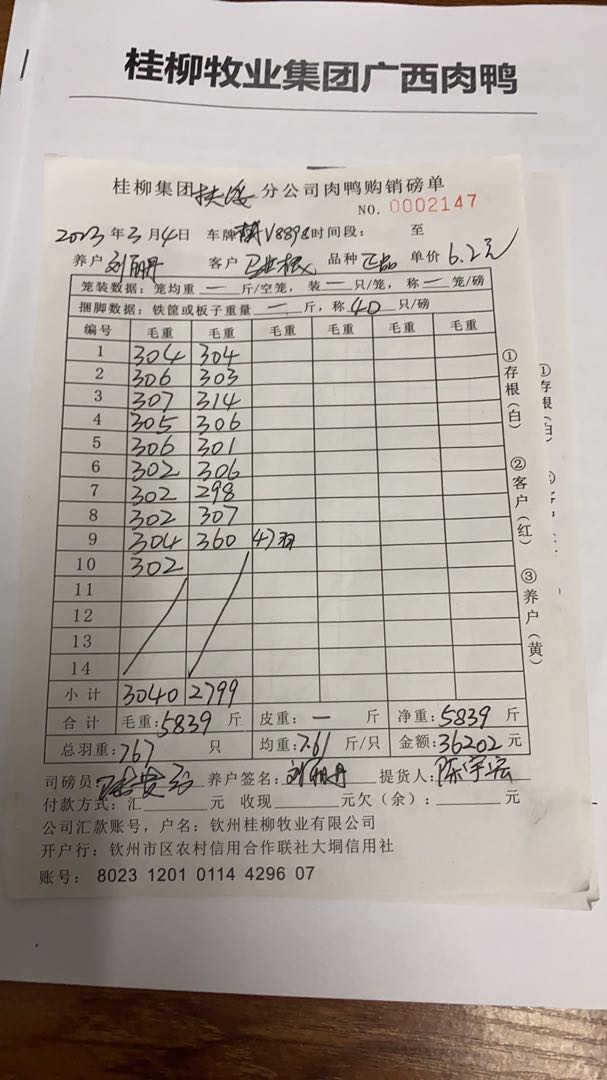 桂柳牧业集团广西肉鸭
桂柳集团扶绥分公司肉鸭购销磅单
NO. 0002147
2023年3月4日 车牌V8898时间段： 至
养户 刘丽丹 客户 品种 正品 单价 6.2元
笼装数据：笼均重 一 斤/空笼，装 一 只/笼，称 一 笼/磅
捆脚数据：铁筐或板子重量 一 斤，称 40 只/磅
编号 毛重 毛重 毛重 毛重 毛重 毛重
1 304 304
2 306 303
3 307 314
4 305 306
5 306 301
6 302 306
7 302 298
8 302 307
9 304 360 47羽
10 302
11
12
13
14
小计 3040 2799
合计 毛重：5839 斤 皮重：一 斤 净重：5839 斤
总羽重：767 只 均重：7.61 斤/只 金额：36202 元
司磅员： 养户签名：刘丽丹 提货人：陈宇宏
付款方式：汇 元 收现 元欠（余）： 元
公司汇款账号，户名：钦州桂柳牧业有限公司
开户行：钦州市区农村信用合作联社大垌信用社
账号：8023 1201 0114 4296 07
①存根（白）
②客户（红）
③养户（黄）